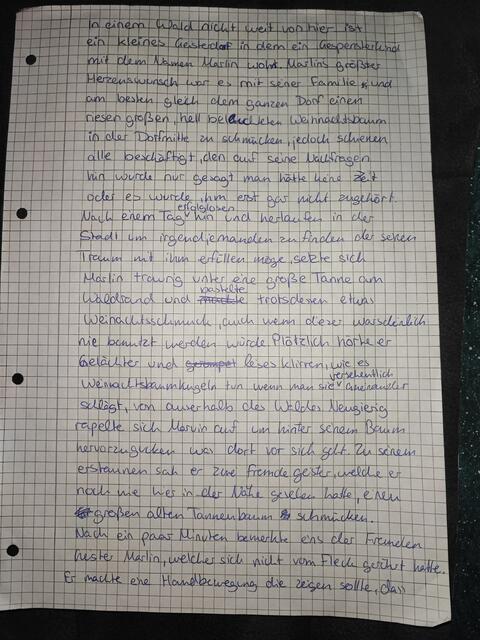 In einem Wald nicht weit von hier ist
ein kleines Geisterdorf in dem ein Gespensterkind
mit dem Namen Marlin wohnt. Marlins größter
Herzenswunsch war es mit seiner Familie, und
am besten gleich dem ganzen Dorf einen
riesen großen, hell beleuchteten Weihnachtsbaum
in der Dorfmitte zu schmücken, jedoch schienen
alle beschäftigt, den auf seine Nachfragen
hin wurde nur gesagt man hätte keine Zeit
oder es wurde ihm erst gar nicht zugehört.
Nach einem Tag erfolglosen hin und herlaufen in der
Stadt um irgendjemanden zu finden der seinen
Traum mit ihm erfüllen möge, setzte sich
Marlin traurig unter eine große Tanne am
Waldrand und bastelte trotsdessen etwas
Weinachtsschmuck, auch wenn dieser warscheinlich
nie benutzt werden würde Plötzlich hörte er
Gelächter und leises klirren, wie es
Weinachtsbaumkugeln tun wenn man sie versehentlich aneinander
schlägt, von auserhalb des Waldes Neugierig
rapelte sich Marvin auf um hinter seinem Baum
hervorzugucken was dort vor sich geht. Zu seinem
erstaunen sah er zwei fremde geister, welche er
noch nie hier in der Nähe gesehen hatte, einen
großen alten Tannenbaum schmücken.
Nach ein paar Minuten bemerkte eins der Fremden
Geister Marlin, welcher sich nicht vom Fleck gerührt hatte.
Er machte eine Handbewegung die zeigen sollte, dass